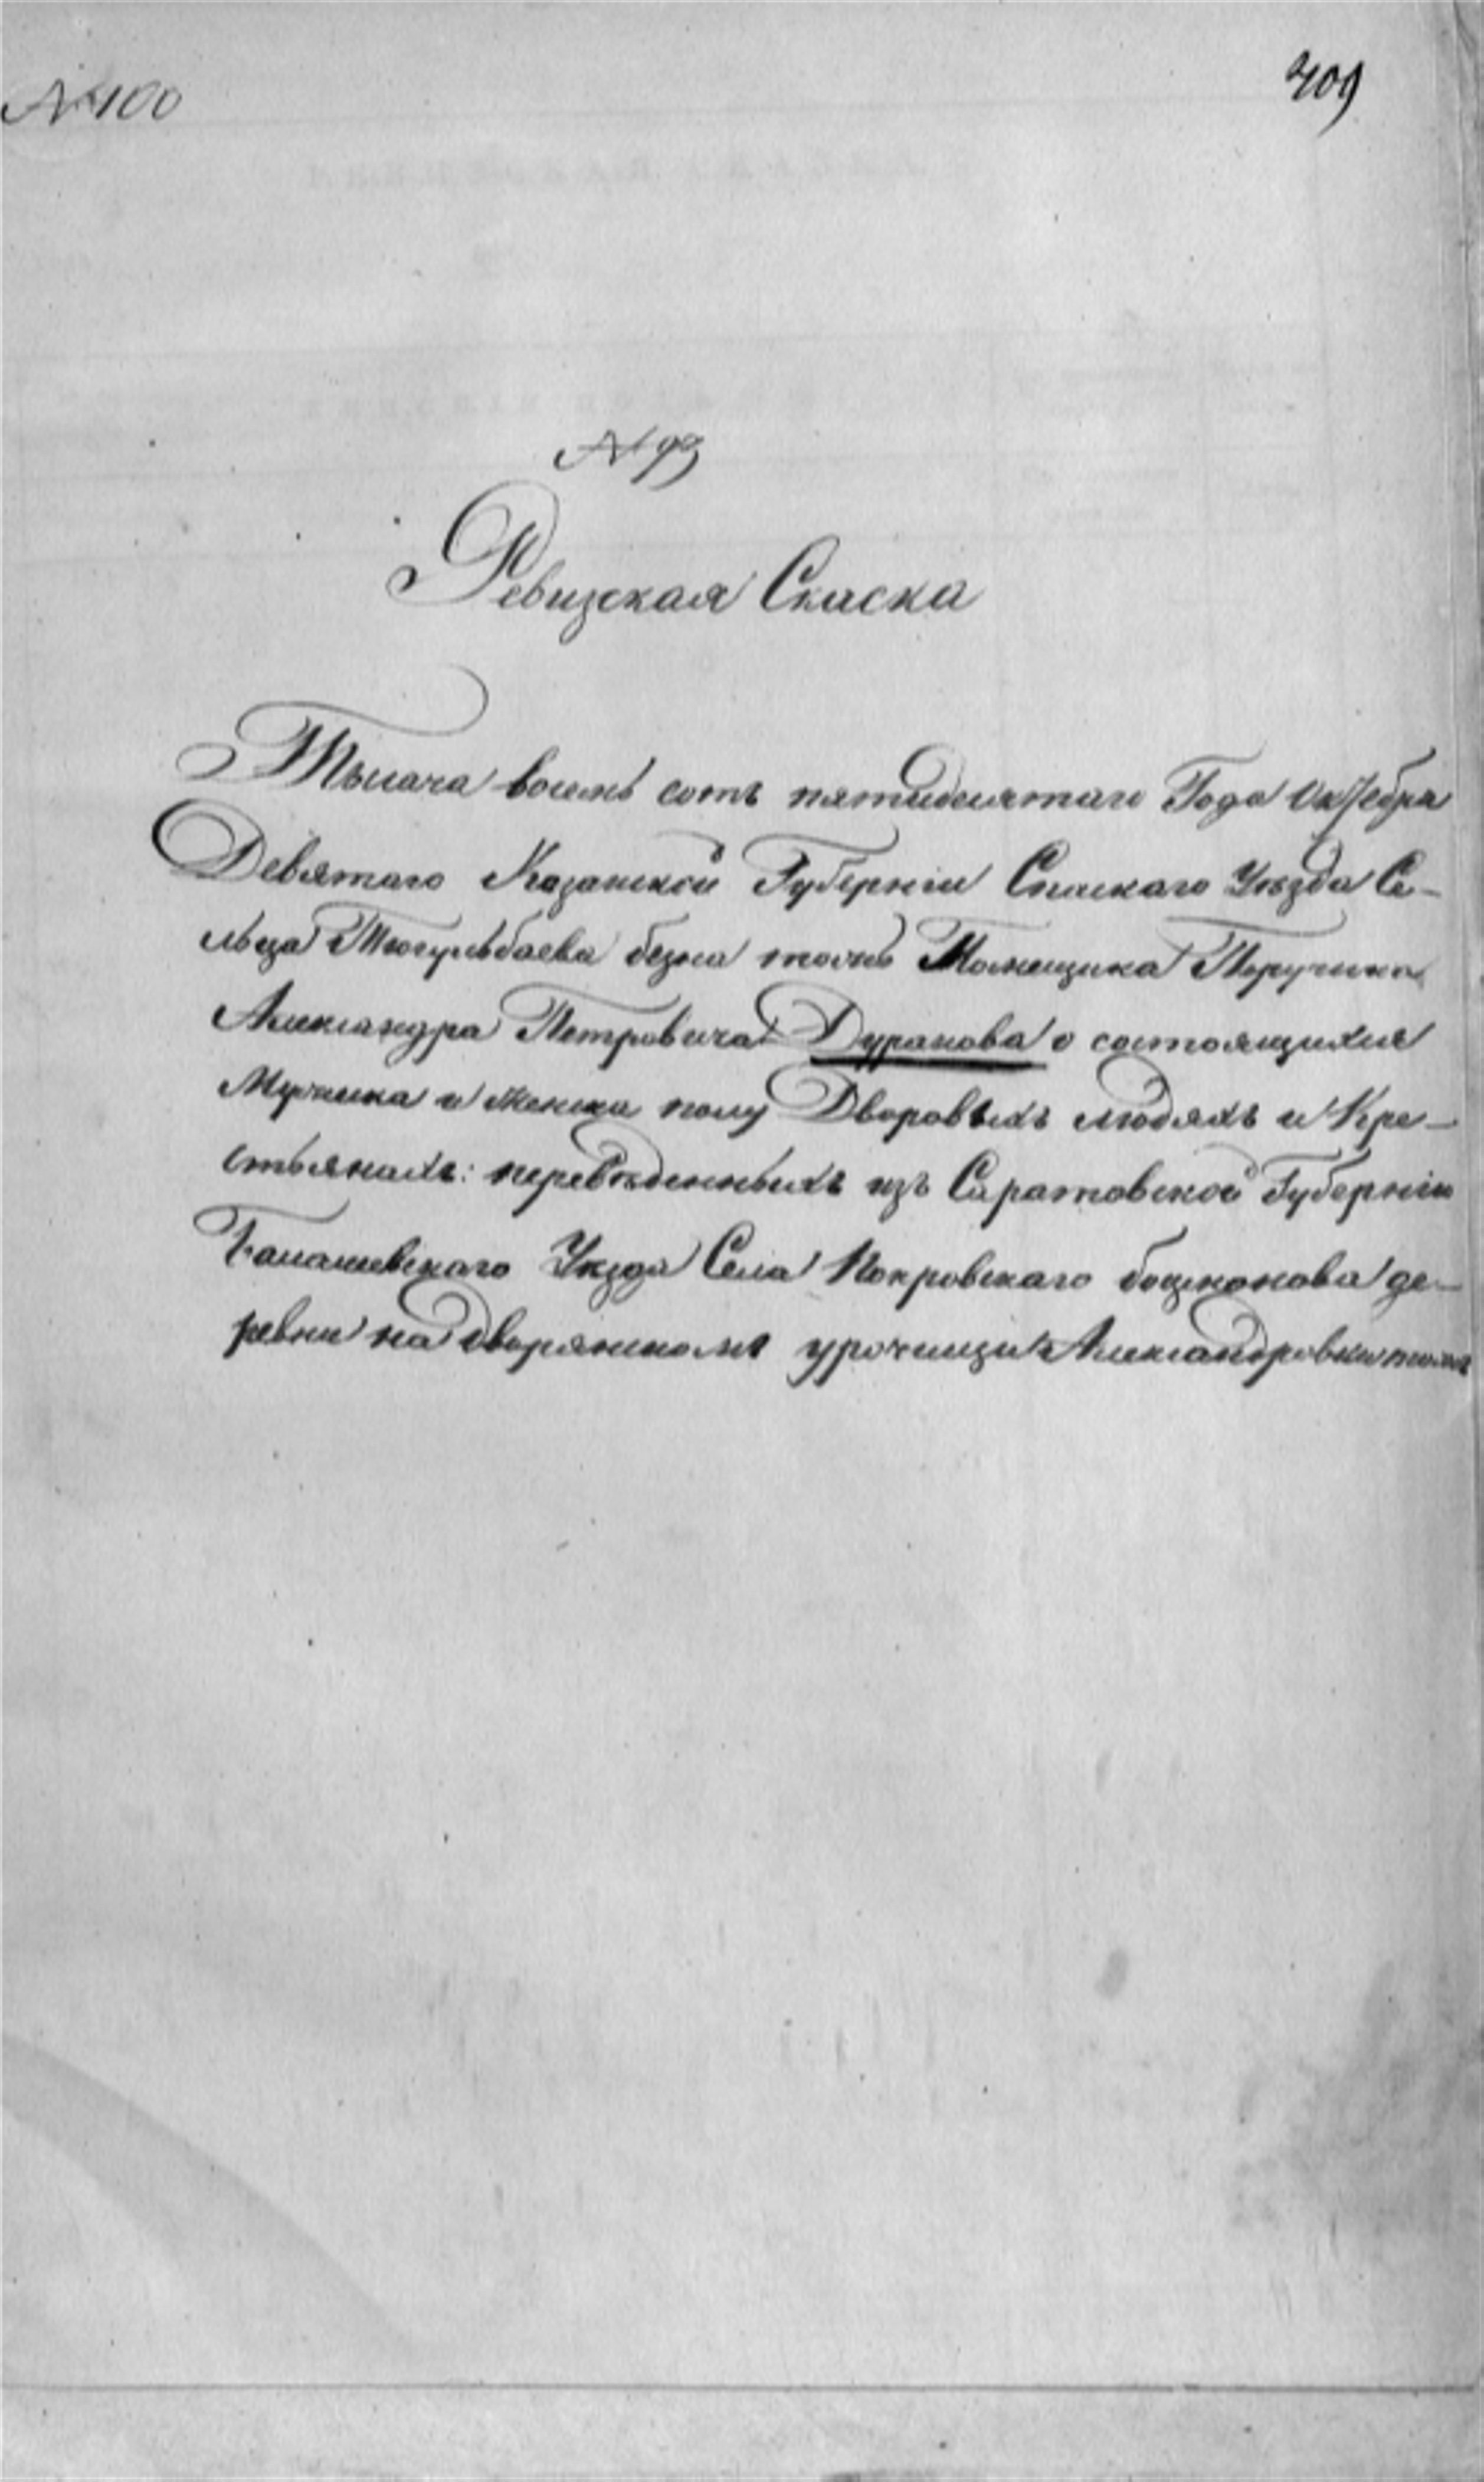 № 100
409
№ 99
Ревизская Скаска
Тысеча восемь сотъ пятидесятаго Года Октебря
Девятаго Казанской Губерніи Спаскаго Уѣзда Се-
льца Тюгульбаева безна тожъ Помещика Поручика
Александра Петровича Дуранова о состоящихся
Мужеска и женска полу Дворовыхъ людяхъ и Кре-
стьянахъ: переведенныхъ изъ Саратовской Губерніи
Балашевскаго Уѣзда Села Покровскаго де-
ревни на Дворянскомъ урочищи Александровки тожъ